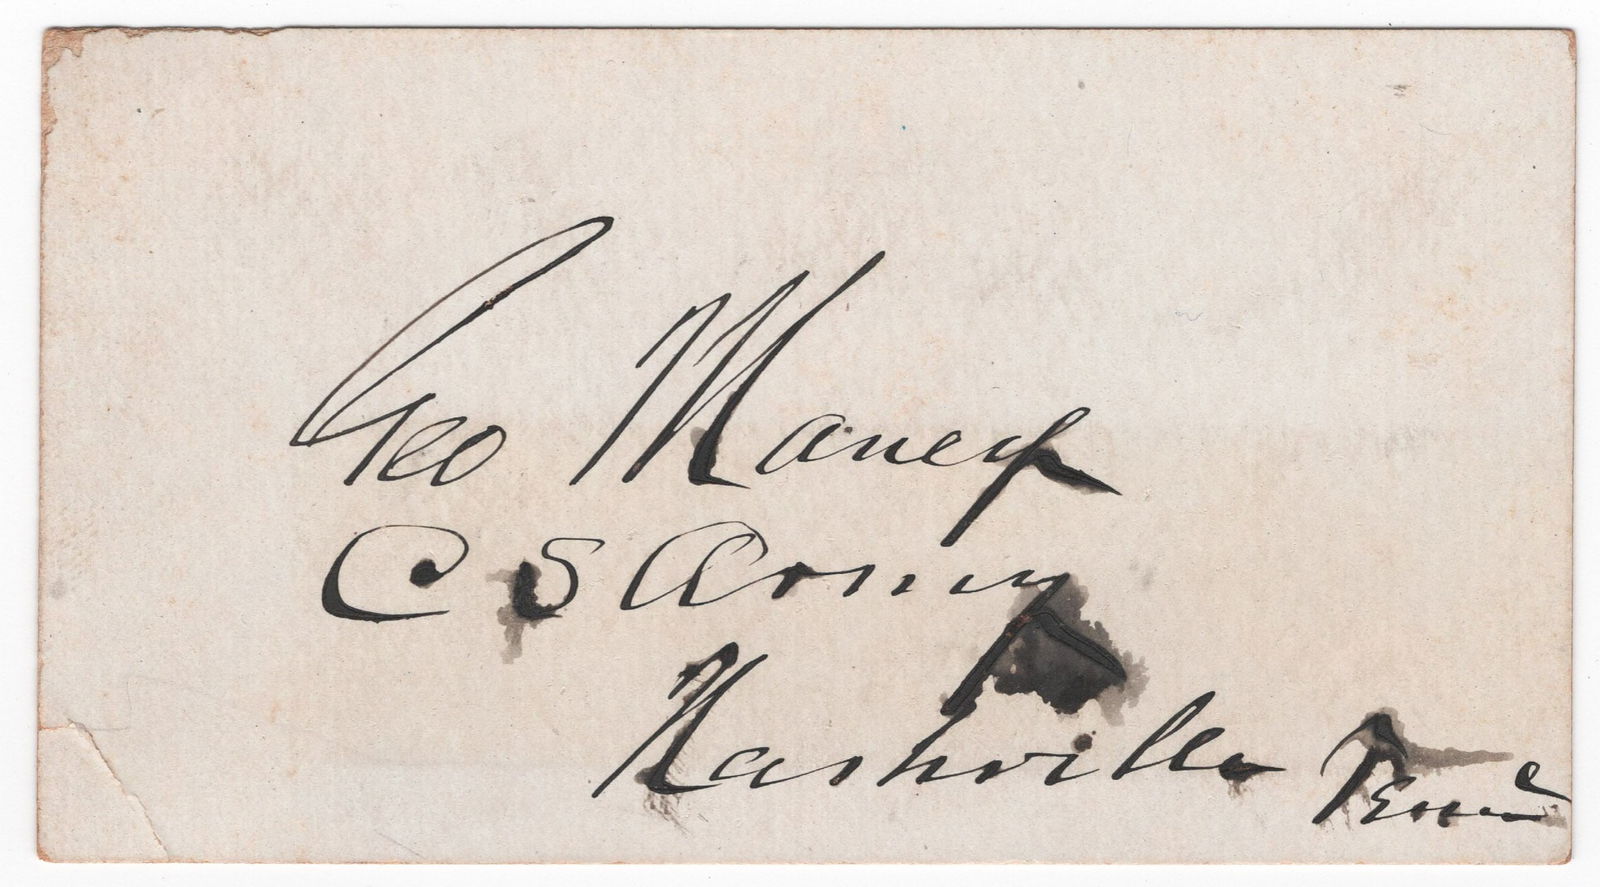 Geo Maney
C. S Army
Nashville Tenne